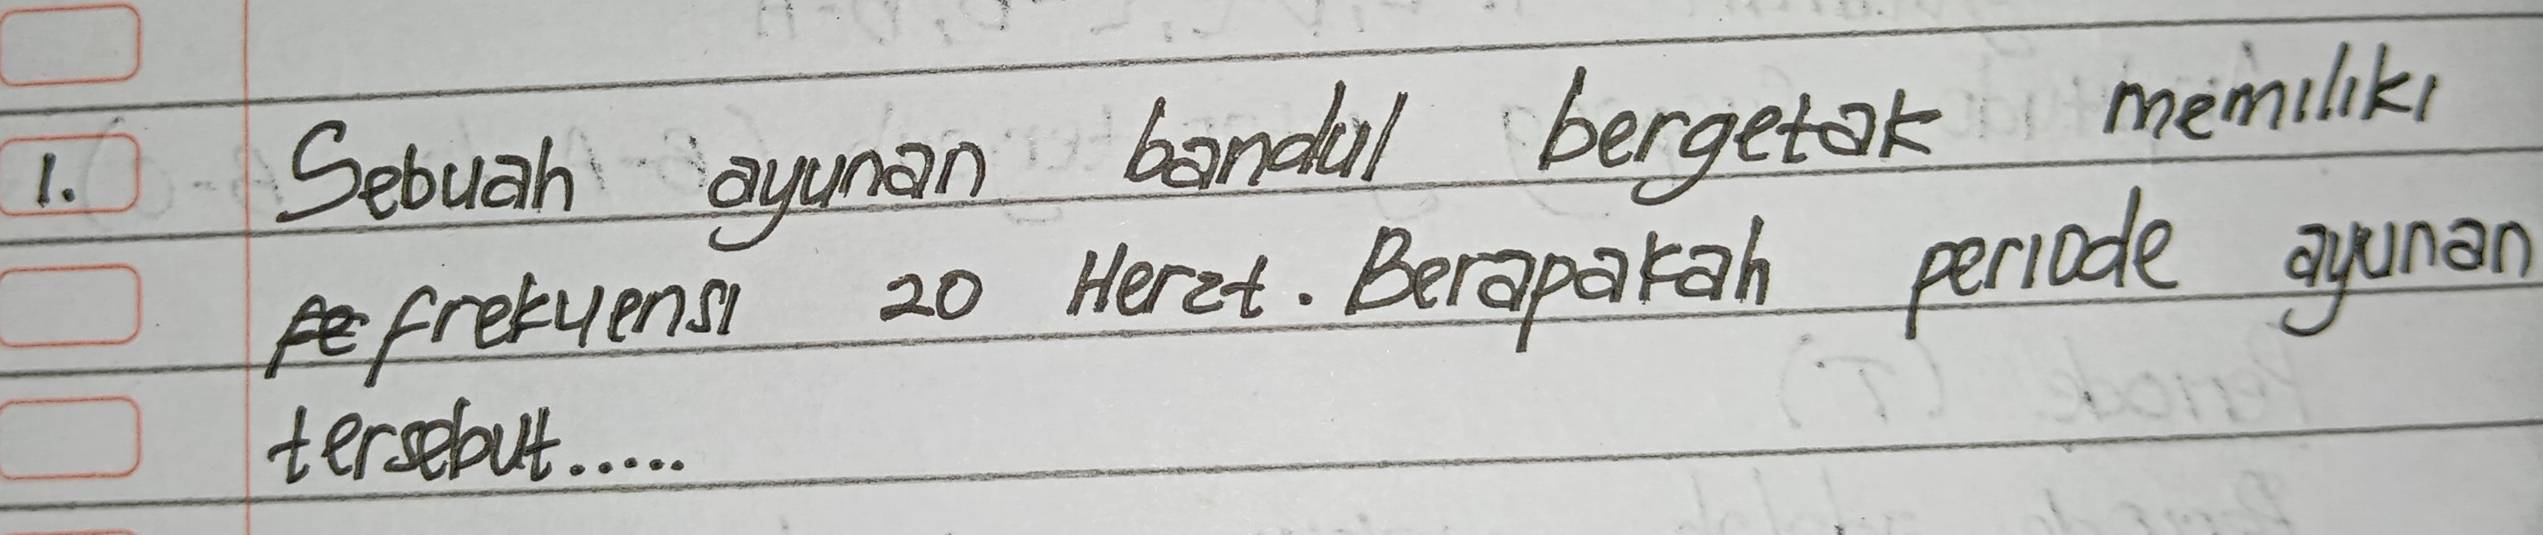 1. Sebuah ayunan bandul bergetak memiliki
frekuensi 20 Herzt. Berapakah periode ayunan
tersebut.....